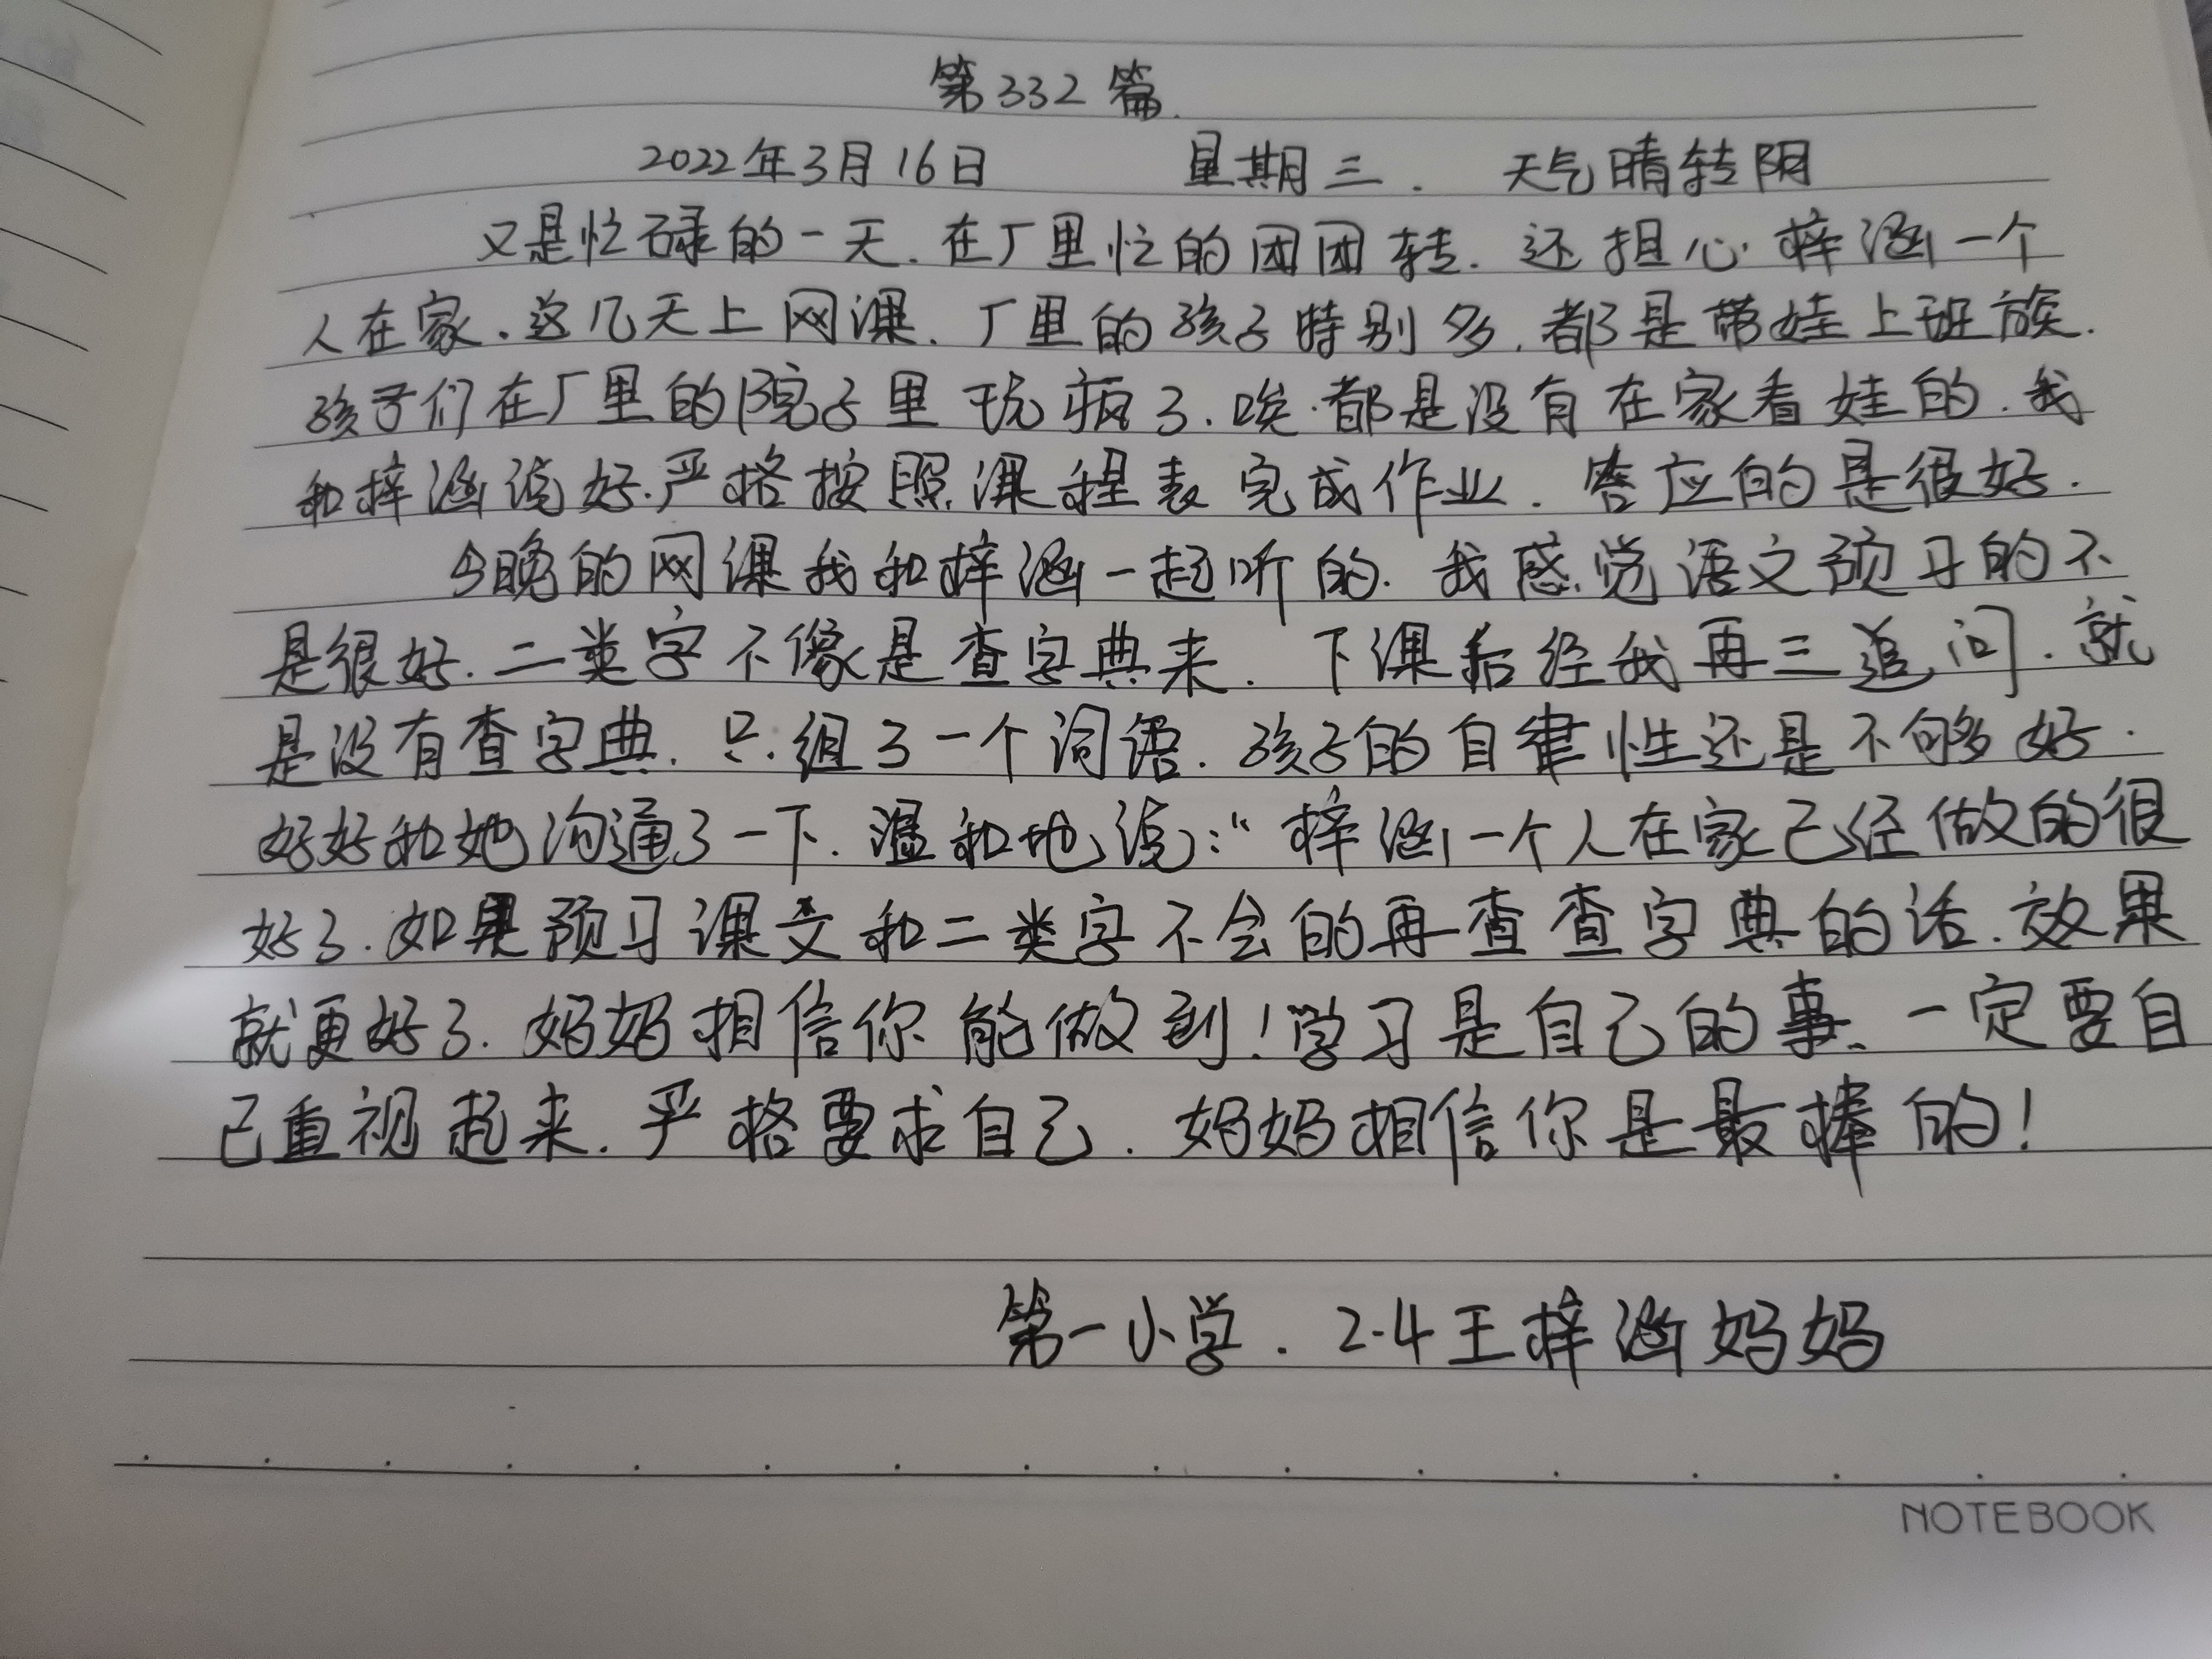 第332篇.
2022年3月16日 星期三. 天气晴转阴
又是忙碌的一天.在厂里忙的团团转.还担心梓涵一个
人在家.这几天上网课.厂里的孩子特别多.都是带娃上班族.
孩子们在厂里的院子里玩疯了.唉.都是没有在家看娃的.我
和梓涵说好.严格按照课程表完成作业.答应的是很好.
今晚的网课我和梓涵一起听的.我感觉语文预习的不
是很好.二类字不像是查字典来.下课后经我再三追问.就
是没有查字典.只组了一个词语.孩子的自律性还是不够好.
好好和她沟通了一下.温和地说:“梓涵一个人在家已经做的很
好了.如果预习课文和二类字不会的再查查字典的话.效果
就更好了.妈妈相信你能做到!学习是自己的事、一定要自
己重视起来.严格要求自己.妈妈相信你是最棒的!
第一小学.2.4王梓涵妈妈
NOTEBOOK